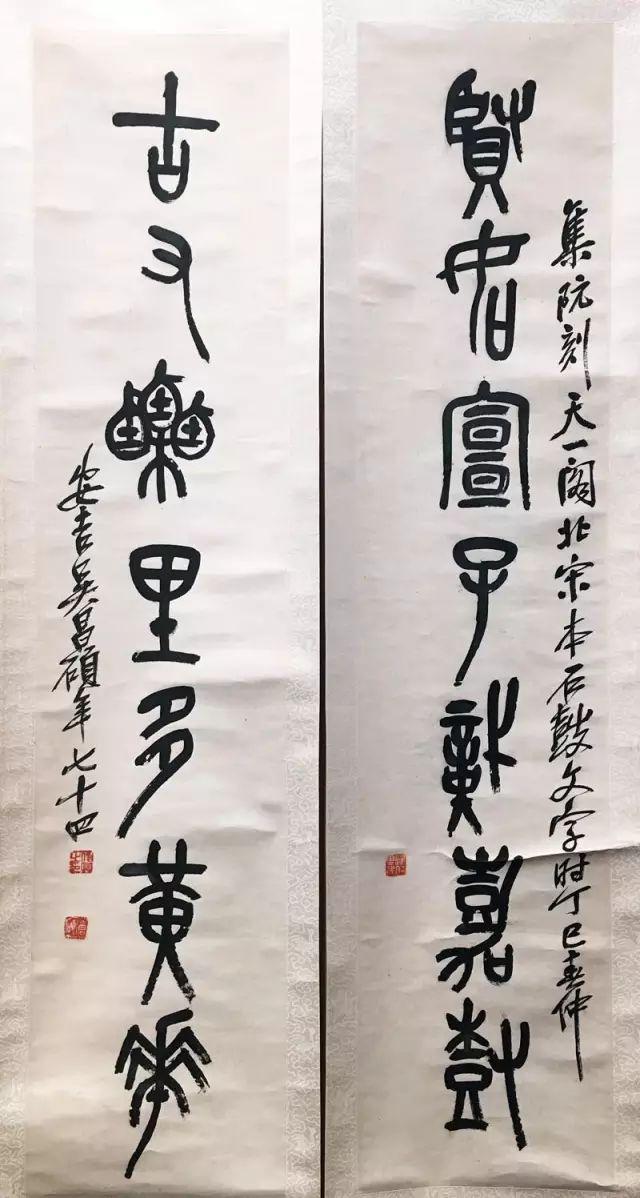 賢如宣子嘉樹
集阮刻天一閣北宋本石鼓文字時丁巳春仲
古又栗里多黃華
安吉吳昌碩年七十四